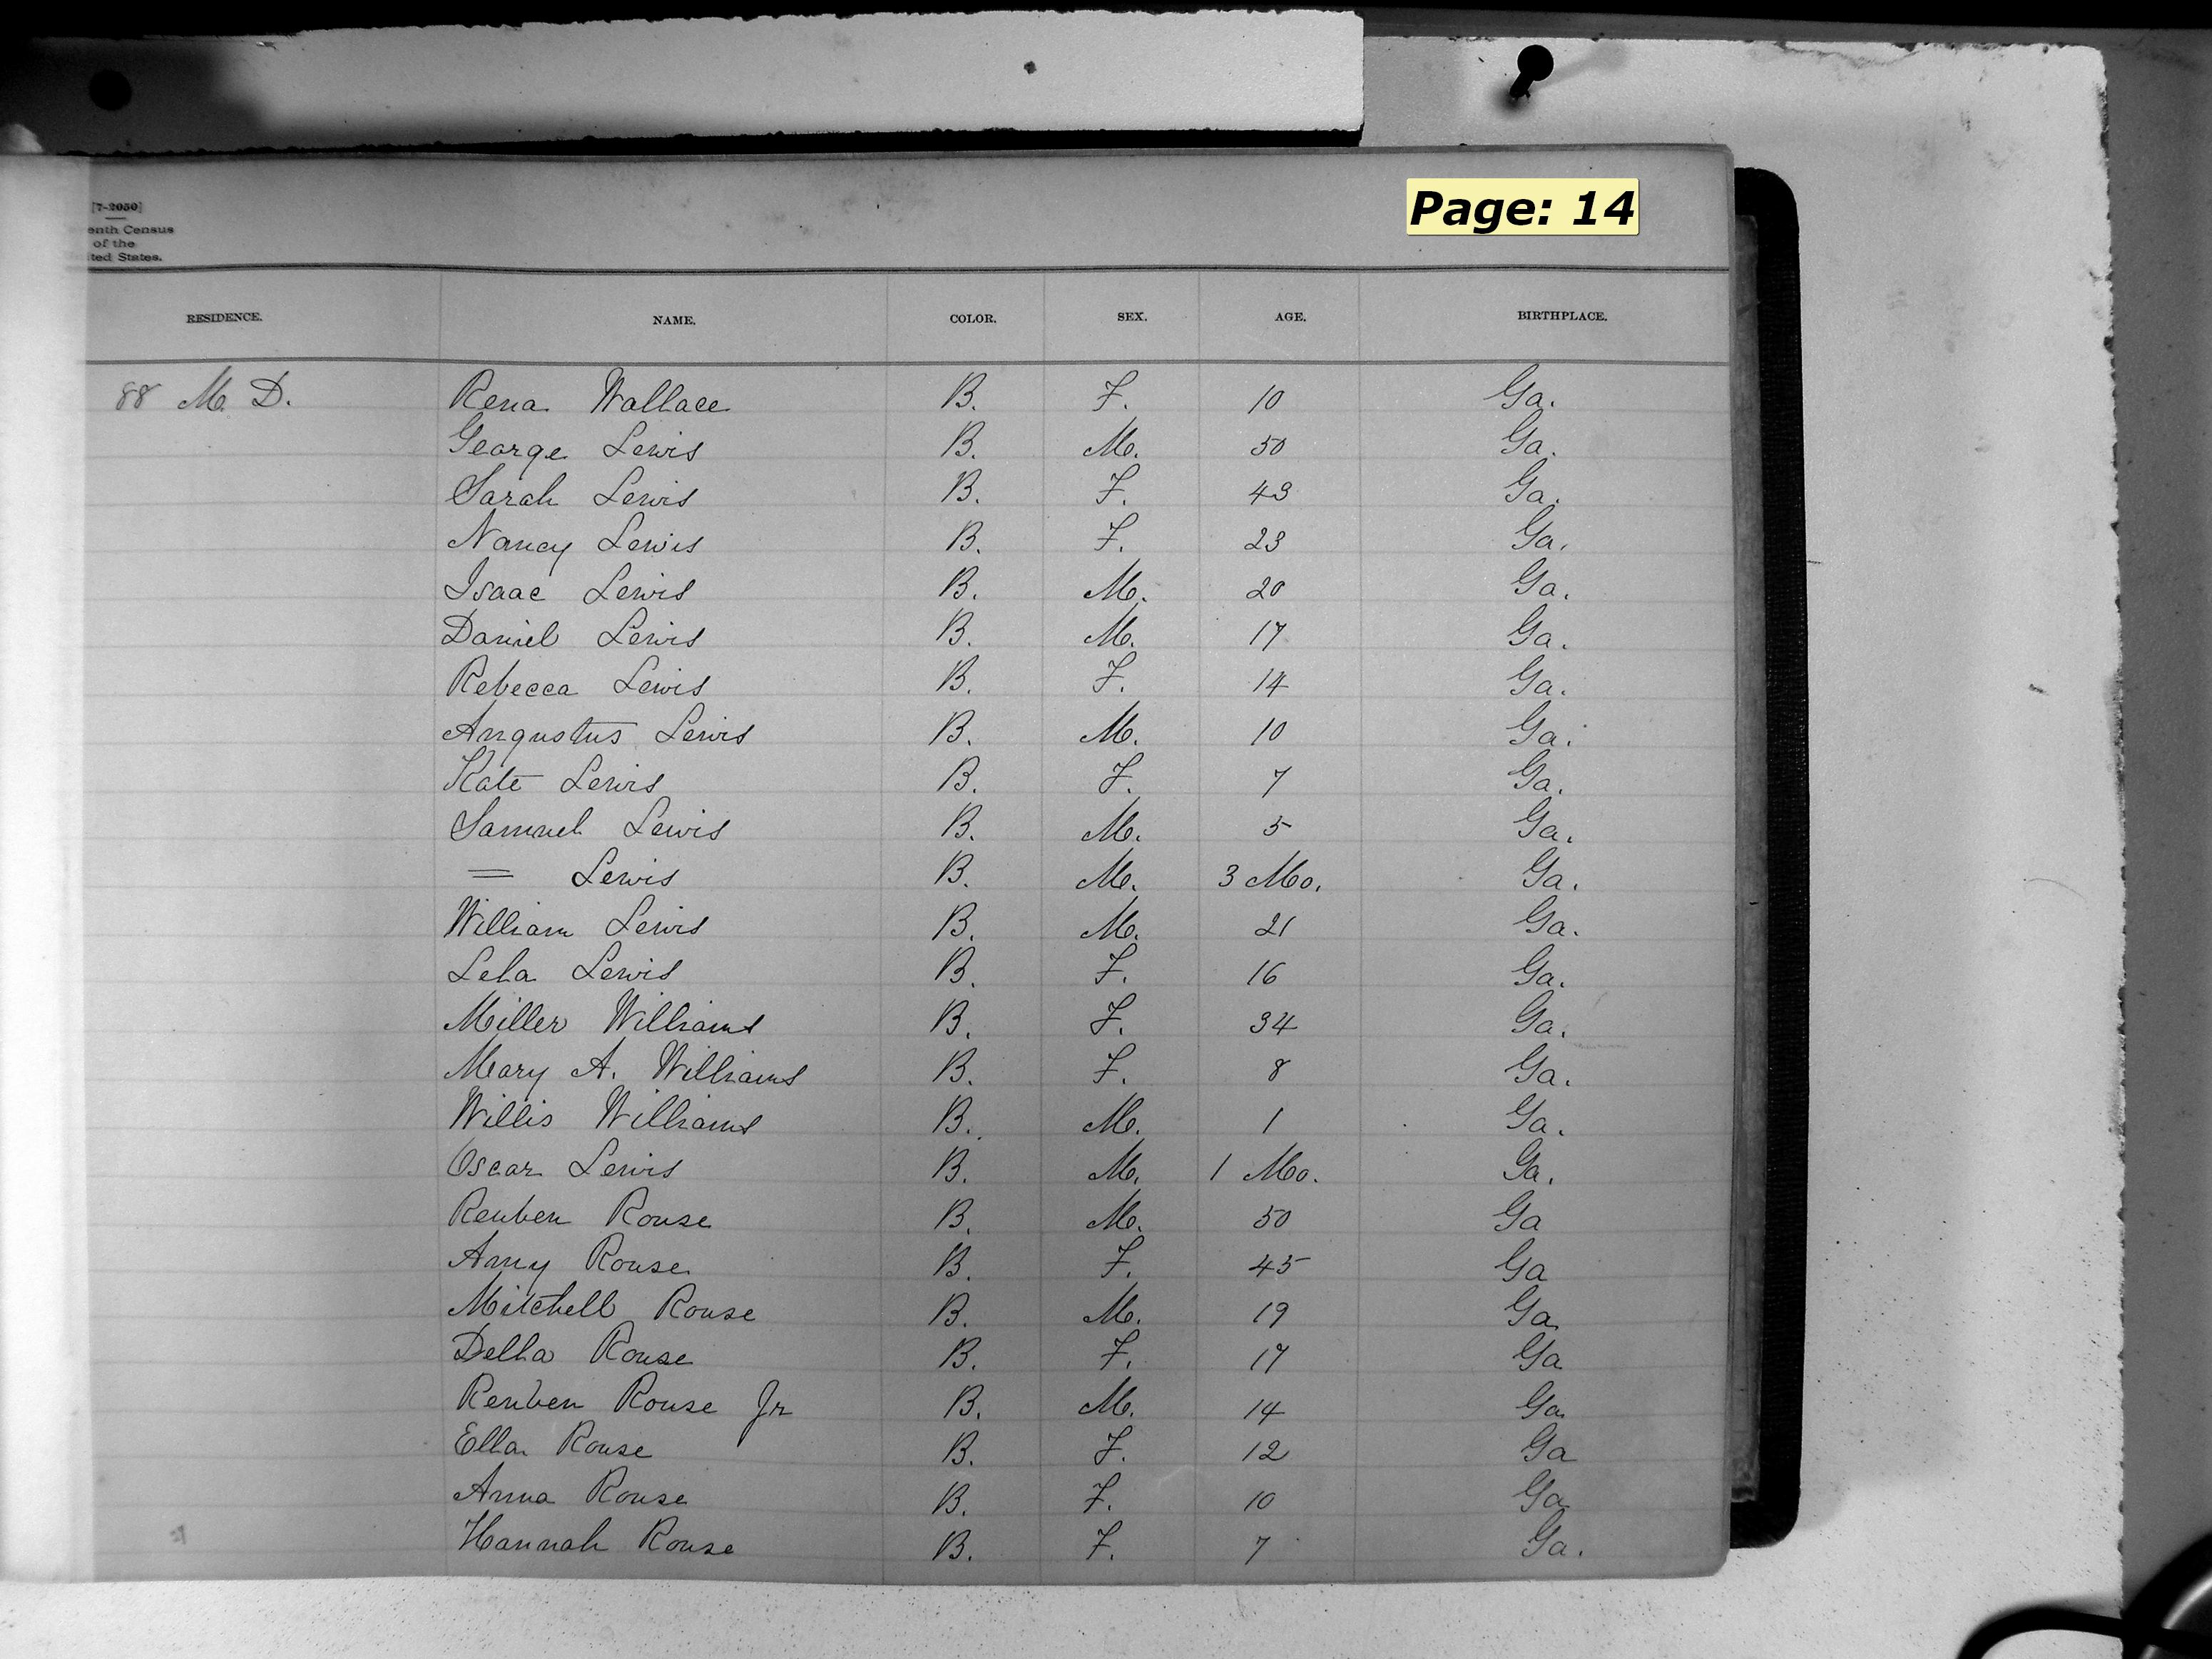 Page: 14
[7-2050]
enth Census
of the
ited States.
RESIDENCE. NAME. COLOR. SEX. AGE. BIRTHPLACE.
88 M. D. Rena Wallace B. F. 10 Ga.
George Lewis B. M. 50 Ga.
Sarah Lewis B. F. 43 Ga.
Nancy Lewis B. F. 23 Ga.
Isaac Lewis B. M. 20 Ga.
Daniel Lewis B. M. 17 Ga.
Rebecca Lewis B. F. 14 Ga.
Augustus Lewis B. M. 10 Ga.
Kate Lewis B. F. 7 Ga.
Samuel Lewis B. M. 5 Ga.
= Lewis B. M. 3 Mo. Ga.
William Lewis B. M. 21 Ga.
Lela Lewis B. F. 16 Ga.
Miller Williams B. F. 34 Ga.
Mary A. Williams B. F. 8 Ga.
Willis Williams B. M. 1 Ga.
Oscar Lewis B. M. 1 Mo. Ga.
Reuben Rouse B. M. 50 Ga
Amy Rouse B. F. 45 Ga
Mitchell Rouse B. M. 19 Ga
Della Rouse B. F. 17 Ga
Reuben Rouse Jr B. M. 14 Ga
Ella Rouse B. F. 12 Ga
Anna Rouse B. F. 10 Ga
Hannah Rouse B. F. 7 Ga.